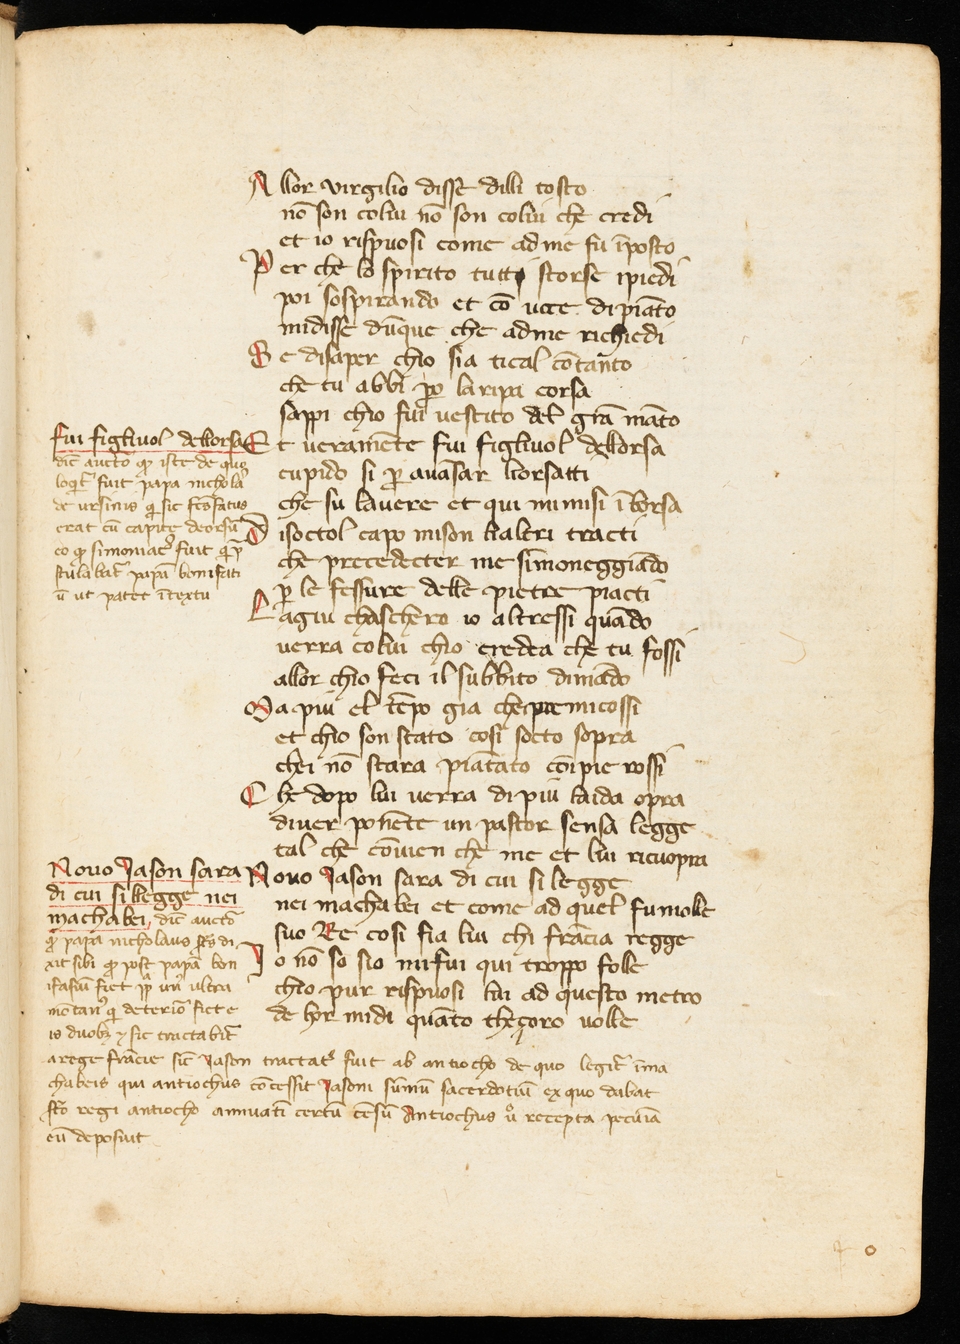 Allor virgilio disse dilli tosto
nō son colui nō son colui che credi
et io rispuosi come ad me fu īposto
Per che lo spirito tutti storse ipiedi
poi sospirando et cō uoce di piāto
midisse dūque che adme richiedi
Se disaper chio sia tical cōtanto
che tu abbi ꝑo laripa corsa
sappi chio fui uestito del grā māto
Et veramēte fui figliuol dellorsa
cupido si ꝑ auāsar lorsatti
che su lauere et qui mi misi ī borsa
Disoctol capo mison li altri tracti
che precedecter me simoneggiādo
ꝑ le fessure delle pietre piacti
Lagiu chaschero io altressi quādo
uerra colui chio credea che tu fossi
allor chio feci il subbito dimādo
Ma piu el tēpo gia che pie micossi
et chio son stato cosi socto sopra
chei nō stara piātato cōi pie rossi
Che dopo lui uerra di piu laida opra
di uer ponēte un pastor sensa legge
tal che cōuien che me et lui ricuopra
Nouo Jason sara di cui si legge
nei machabei et come ad quel fu molle
suo Re cosi fia lui chi frācia regge
Jo nō so sio mi fui qui troppo folle
chio pur rispuosi lui ad questo metro
de hor midi quāto theçoro uolle
fui figliuol dellorsa
dic̄ auctō ꝙ iste de quo
loqt̄ fuit papa nichola
de ursinis q̄ sic
erat cū capite deorsū
co ꝙ simoniac̓ fuit
papā bonifati
ū ut patet ī textu
Nouo Jason sara
di cui si legge nei
machabei, dic̄ auctō
ꝙ papa nicholaus
xit sibi ꝙ post papā bon
ifatiū fiet ultra
mōtan̓ q̄ deterio fiet e
is duob; ⁊ sic tractabit̄
a rege frācie sic̄ Jason tractat̓ fuit ab antiocho de quo legit̄ ī ma
chabeis qui antiochus cōcessit Jasoni sūmū sacerdotiū ex quo dabat
regi antiocho annuatī certū cēsū Antiochus ů recepta pecūia
eū deposuit